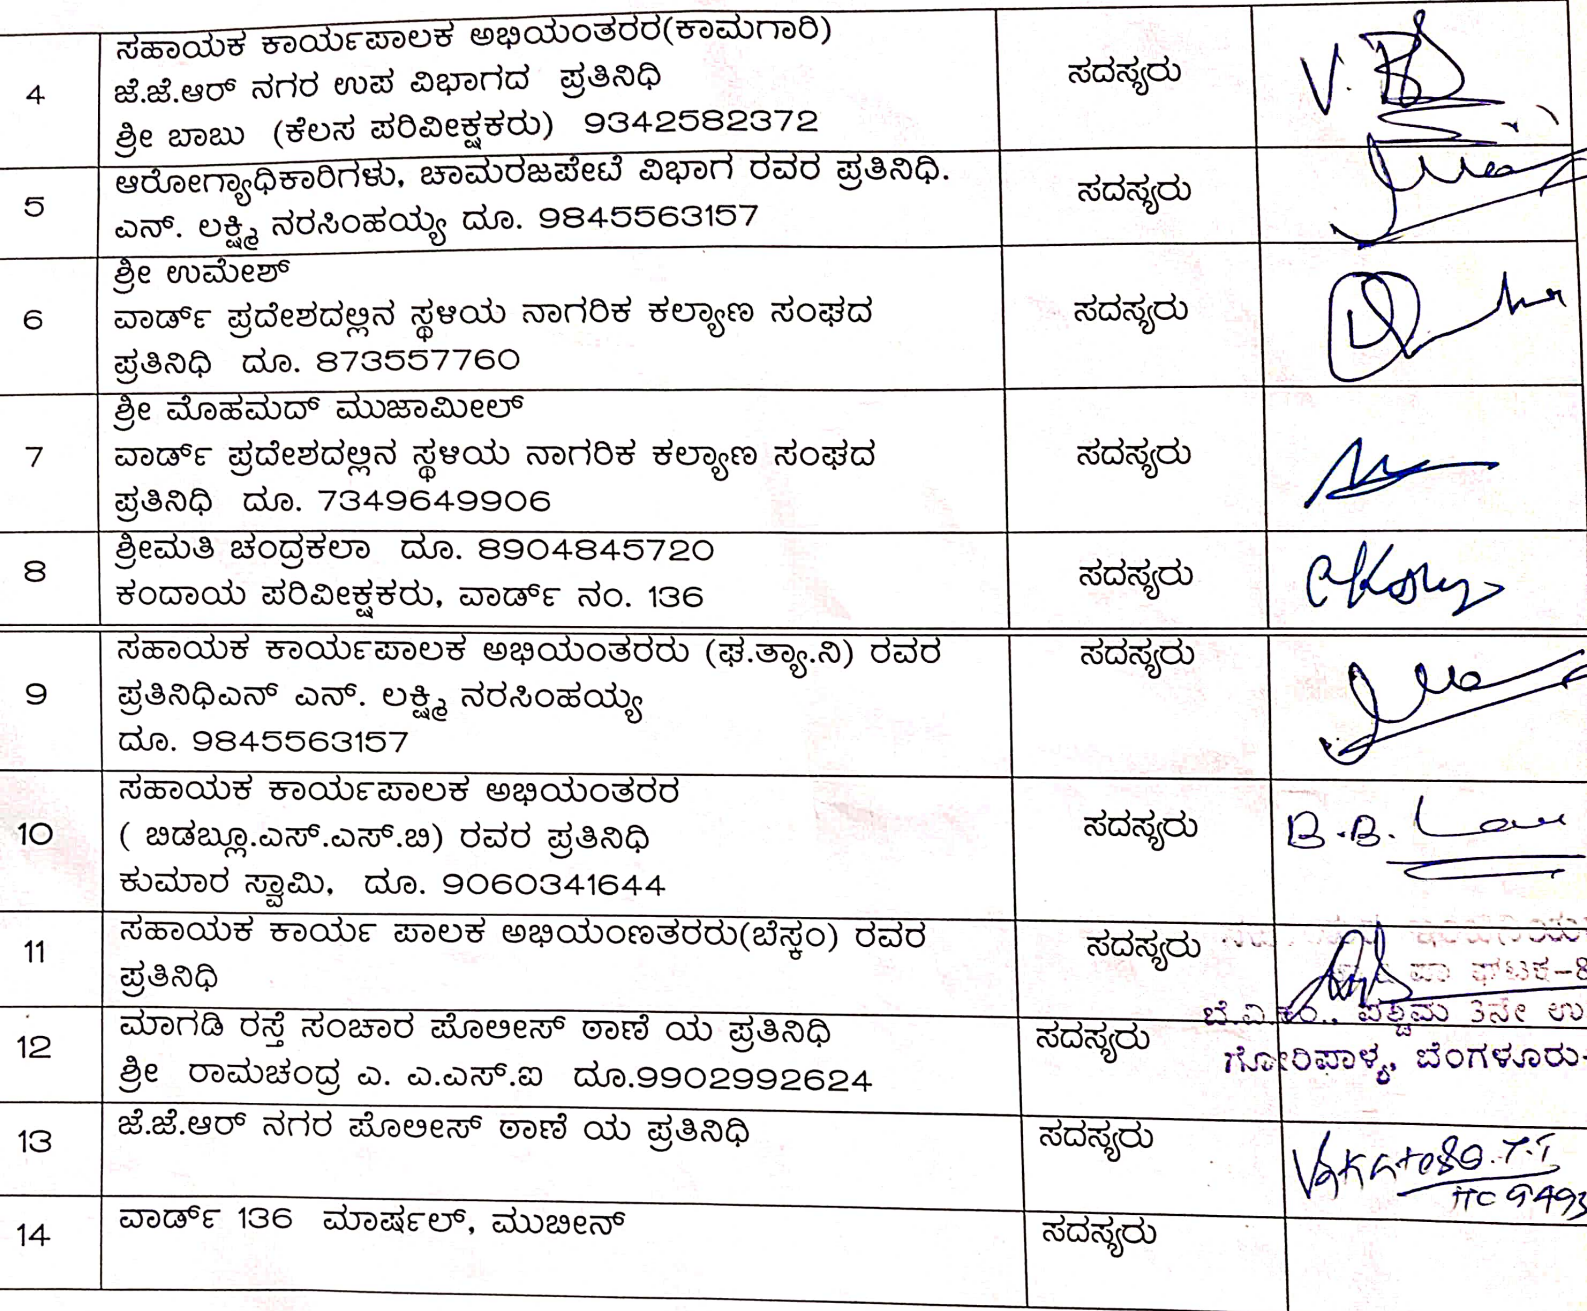 4
ಸಹಾಯಕ ಕಾರ್ಯಪಾಲಕ ಅಭಿಯಂತರರ(ಕಾಮಗಾರಿ)
ಜೆ.ಜೆ.ಆರ್ ನಗರ ಉಪ ವಿಭಾಗದ ಪ್ರತಿನಿಧಿ
ಶ್ರೀ ಬಾಬು (ಕೆಲಸ ಪರಿವೀಕ್ಷಕರು) 9342582372
ಸದಸ್ಯರು
5
ಆರೋಗ್ಯಾಧಿಕಾರಿಗಳು, ಚಾಮರಜಪೇಟೆ ವಿಭಾಗ ರವರ ಪ್ರತಿನಿಧಿ.
ಎನ್. ಲಕ್ಷ್ಮಿ ನರಸಿಂಹಯ್ಯ ದೂ. 9845563157
ಸದಸ್ಯರು
6
ಶ್ರೀ ಉಮೇಶ್
ವಾರ್ಡ್ ಪ್ರದೇಶದಲ್ಲಿನ ಸ್ಥಳಿಯ ನಾಗರಿಕ ಕಲ್ಯಾಣ ಸಂಘದ
ಪ್ರತಿನಿಧಿ ದೂ. 873557760
ಸದಸ್ಯರು
7
ಶ್ರೀ ಮೊಹಮದ್ ಮುಜಾಮೀಲ್
ವಾರ್ಡ್ ಪ್ರದೇಶದಲ್ಲಿನ ಸ್ಥಳಿಯ ನಾಗರಿಕ ಕಲ್ಯಾಣ ಸಂಘದ
ಪ್ರತಿನಿಧಿ ದೂ. 7349649906
ಸದಸ್ಯರು
8
ಶ್ರೀಮತಿ ಚಂದ್ರಕಲಾ ದೂ. 8904845720
ಕಂದಾಯ ಪರಿವೀಕ್ಷಕರು, ವಾರ್ಡ್ ನಂ. 136
ಸದಸ್ಯರು
9
ಸಹಾಯಕ ಕಾರ್ಯಪಾಲಕ ಅಭಿಯಂತರರು (ಘ.ತ್ಯಾ.ನಿ) ರವರ
ಪ್ರತಿನಿಧಿಎನ್ ಎನ್. ಲಕ್ಷ್ಮಿ ನರಸಿಂಹಯ್ಯ
ದೂ. 9845563157
ಸದಸ್ಯರು
10
ಸಹಾಯಕ ಕಾರ್ಯಪಾಲಕ ಅಭಿಯಂತರರ
( ಬಿಡಬ್ಲೂ.ಎಸ್.ಎಸ್.ಬಿ) ರವರ ಪ್ರತಿನಿಧಿ
ಕುಮಾರ ಸ್ವಾಮಿ, ದೂ. 9060341644
ಸದಸ್ಯರು
B.B.
11
ಸಹಾಯಕ ಕಾರ್ಯ ಪಾಲಕ ಅಭಿಯಂಣತರರು(ಬೆಸ್ಕಂ) ರವರ
ಪ್ರತಿನಿಧಿ
ಸದಸ್ಯರು
ಘಟಕ-8
ಬೆ.ವಿ.ಕಂ., ಪಶ್ಚಿಮ 3ನೇ ಉ
ಗೋರಿಪಾಳ್ಯ, ಬೆಂಗಳೂರು-
12
ಮಾಗಡಿ ರಸ್ತೆ ಸಂಚಾರ ಪೊಲೀಸ್ ಠಾಣೆ ಯ ಪ್ರತಿನಿಧಿ
ಶ್ರೀ ರಾಮಚಂದ್ರ ಎ. ಎ.ಎಸ್.ಐ ದೂ.9902992624
ಸದಸ್ಯರು
13
ಜೆ.ಜೆ.ಆರ್ ನಗರ ಪೊಲೀಸ್ ಠಾಣೆ ಯ ಪ್ರತಿನಿಧಿ
ಸದಸ್ಯರು
HC 9493
14
ವಾರ್ಡ್ 136 ಮಾರ್ಷಲ್, ಮುಬೀನ್
ಸದಸ್ಯರು